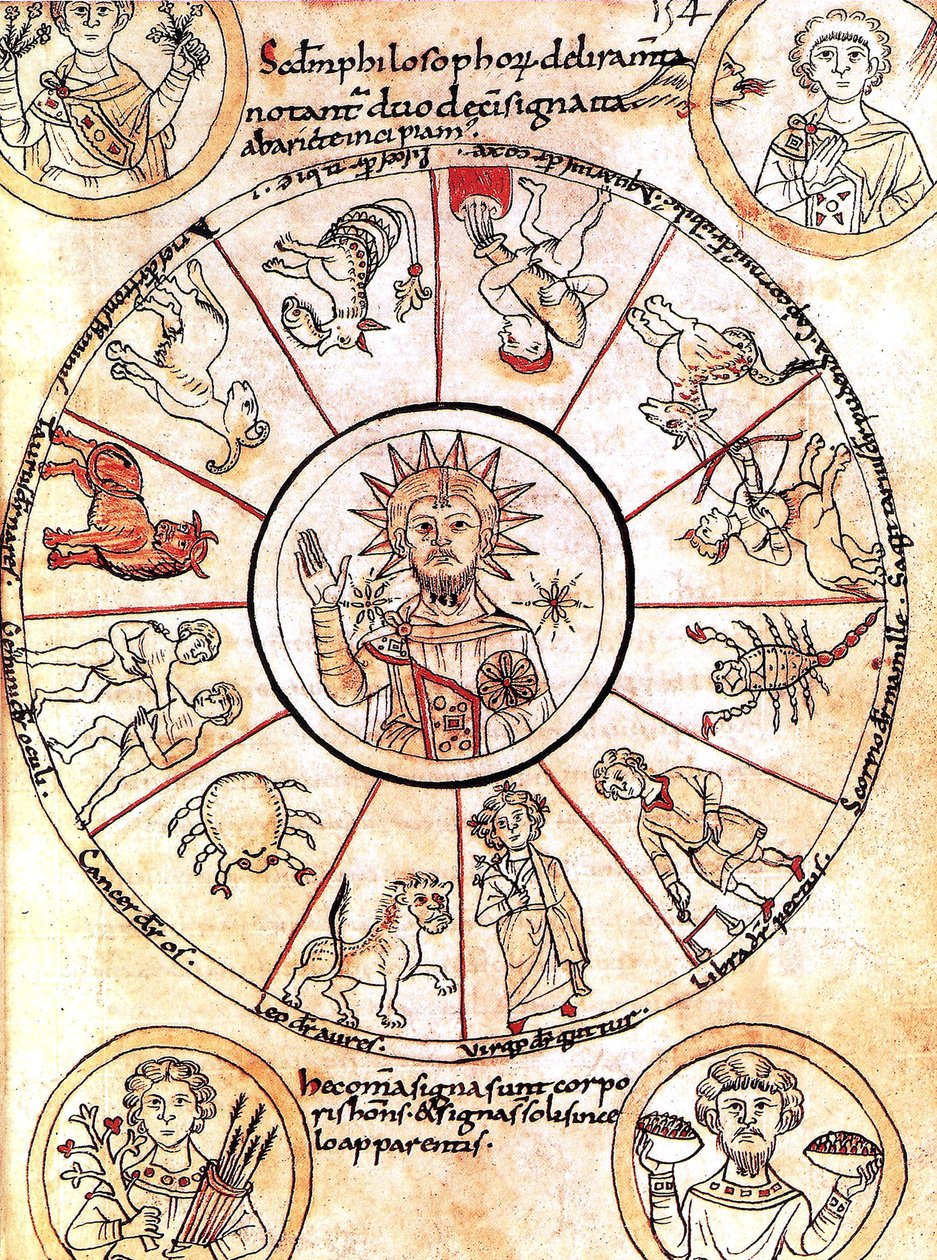 154
Scdm philosophoꝝ deliram̄ta
notant duodeci signa ita
ab ariete incipiam
Aries dr̄ front
Taurus dr̄
Gemini dr̄ oculi.
Cancer dr̄ os.
Leo dr̄ aures.
Virgo dr̄ guttur.
Libra dr̄ pectus.
Scorpius dr̄ mamille.
Sagittarius dr̄
Aquarius dr̄ coxe.
hec om̄a signa sunt corpo
ris hōis. & signa s̄ solis in ce
lo apparentis.